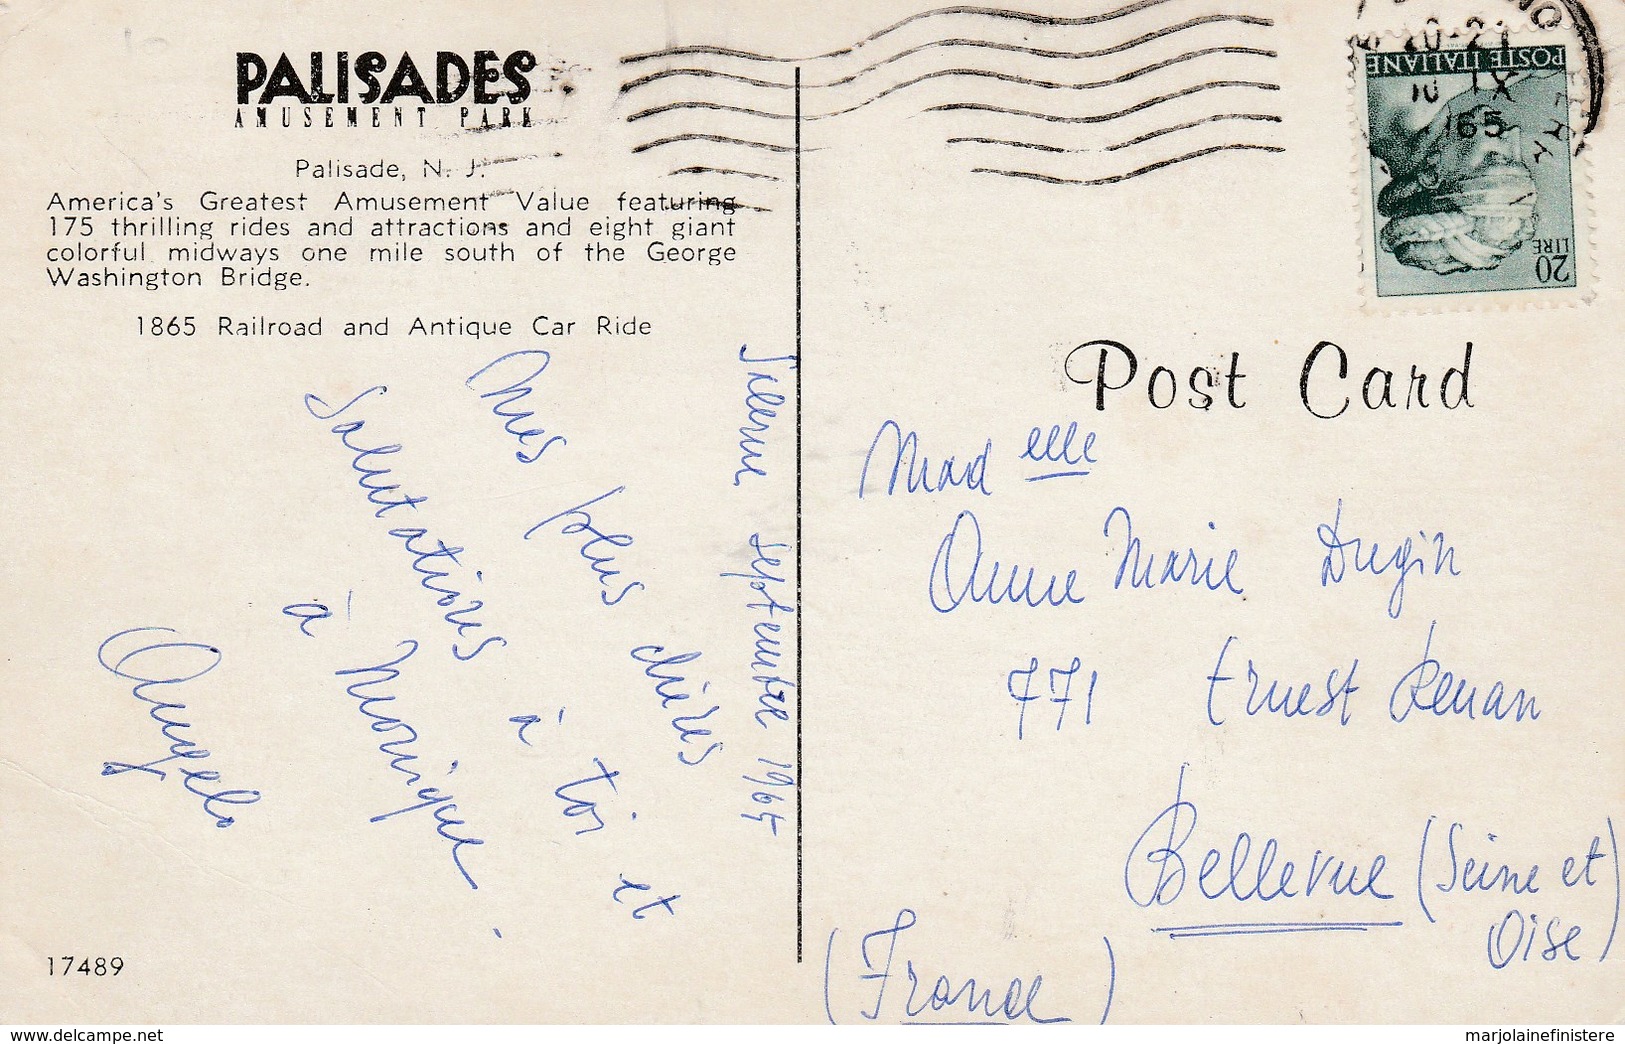 PALISADES
AMUSEMENT PARK
Palisade, N. J.
America's Greatest Amusement Value featuring
175 thrilling rides and attractions and eight giant
colorful midways one mile south of the George
Washington Bridge.
1865 Railroad and Antique Car Ride
septembre 1965
Mes plus chères
Salutations à toi et
à Monique.
Angelo
17489
POSTE ITALIANE
20
LIRE
20-21
IX
65
Post Card
Mad elle
Anne Marie Dugin
771 Ernest Renan
Bellevue (Seine et
Oise)
(France)
delcampe.net
marjolainefinistere